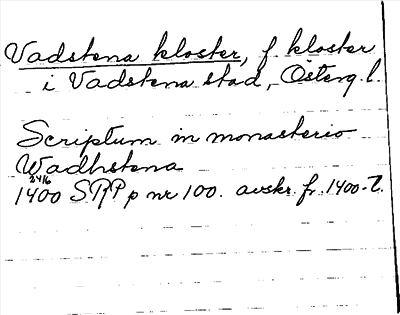 Vadstena kloster, f. kloster
i Vadstena stad, Österg. l.
Scriptum in monasterio
Wadhstena
24/6
1400 SRP p nr 100. avskr. fr. 1400-t.